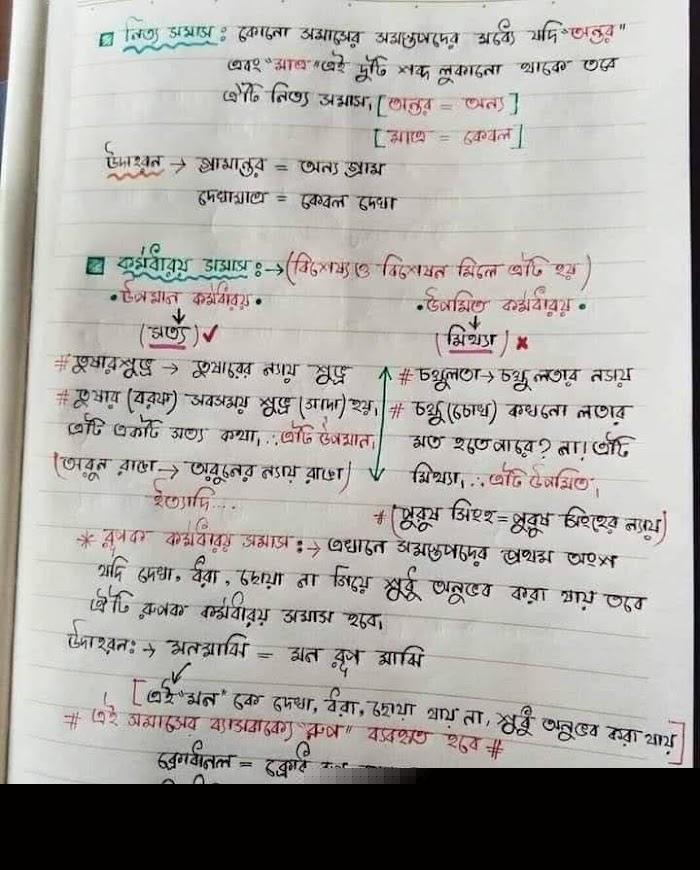 নিত্য সমাস : কোনো সমাসের সমস্তপদের মধ্যে যদি "অন্তর"
এবং "মাত্র" এই দুটি শব্দ লুকানো থাকে তবে
ঐটি নিত্য সমাস। [অন্তর = অন্য]
[মাত্র = কেবল]
উদাহরন → গ্রামান্তর = অন্য গ্রাম
দেখামাত্র = কেবল দেখা
কর্মধারয় সমাস : → (বিশেষ্য ও বিশেষন মিলে ঐটি হয়)
• উপমান কর্মধারয় •
(সত্য) ✓
# তুষারশুভ্র → তুষারের ন্যায় শুভ্র
# তুষার (বরফ) সবসময় শুভ্র (সাদা) হয়,
এটি একটি সত্য কথা, ∴ এটি উপমান,
(অরুন রাঙা → অরুনের ন্যায় রাঙা)
ইত্যাদি...
• উপমিত কর্মধারয় •
(মিথ্যা) ✗
# চক্ষুলতা → চক্ষু লতার ন্যায়
# চক্ষু (চোখ) কখনো লতার
মত হতে পারে? না! ঐটি
মিথ্যা, ∴ এটি উপমিত,
# (পুরুষ সিংহ = পুরুষ সিংহের ন্যায়)
* রূপক কর্মধারয় সমাস : → এখানে সমস্তপদের প্রথম অংশ
যদি দেখা, ধরা, ছোয়া না গিয়ে শুধু অনুভব করা যায় তবে
ঐটি রূপক কর্মধারয় সমাস হবে,
উদাহরন : → মনমাঝি = মন রূপ মাঝি
[এই "মন" কে দেখা, ধরা, ছোয়া যায় না, শুধু অনুভব করা যায়]
# এই সমাসের ব্যাসবাক্যে "রূপ" ব্যবহৃত হবে #
ক্রোধানল = ক্রোধ